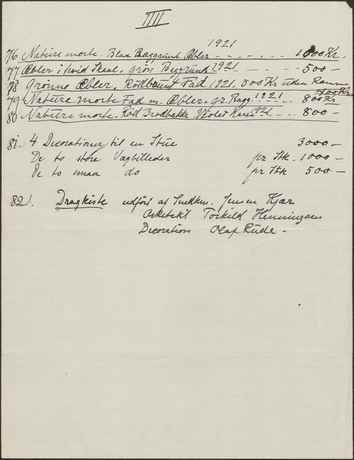 IIII
1921
76 Nature morte. Blaa Baggrund Æbler - - - - - - 1000 Kr.
77 Æbler i hvid Skaal, grøn Baggrund 1921 - - - - - 500 -
78 Grønne Æbler, Rödbrunt Fad 1921. 800 Kr uden Ramme
79 Nature morte Fad m. Æbler. gr. Bagg. 1921 . . . 800 Kr
80 Nature morte. Röd Brødbakke Violet - - 800 -
81. 4 Decorationer til en Stue 3000 -
De to store Vægbilleder pr Stk. 1000 -
De to smaa do pr Stk 500 -
82). Dragkiste udført af Snedkerm. Jensen Kjær
Arkitekt Torkild Henningsen
Decoration Olaf Rude -